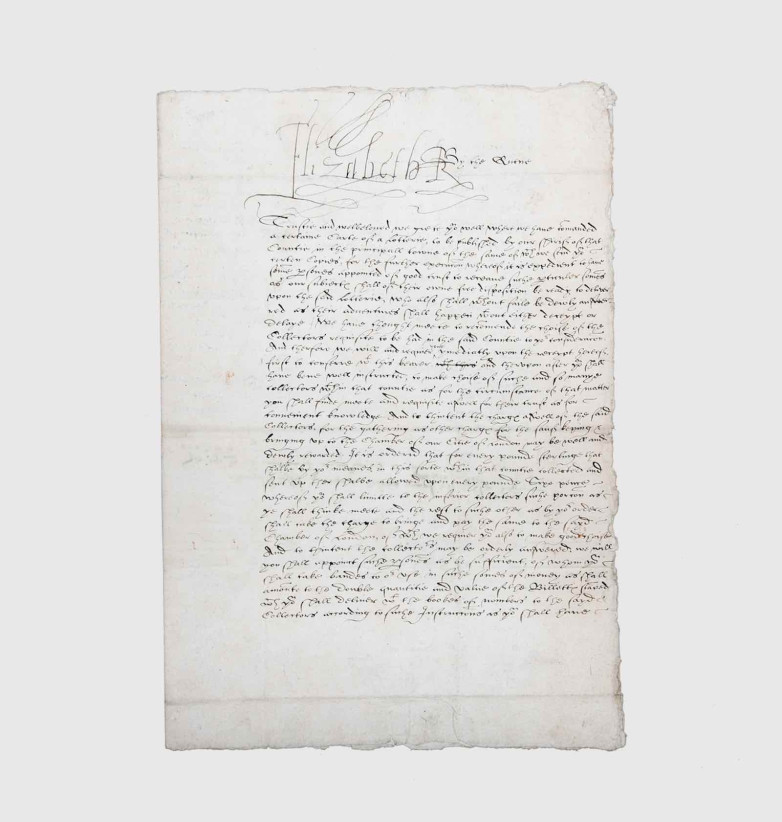 Elizabeth R
By the Quene
Trustie and welbeloved we grete yo well where we have comanded
a certaine Carte of a Lotterie, to be published by our Shrief of that
Countie in the principall townes of the same of wch we send yo
certen Copies, for the further execucion wherof it is expedient to have
some psones appointed of good trust to receave suche pticuler somes
as our subiects shall of their owne free disposition be ready to deliver
upon the said Lotterie, who also shall wthout faile be dewly answe
red as their adventures shall happen wthout either deceipt or
Delaye. We have thought mete to recomende the choise of the
Collectors requisite to be had in the said Countie to yor consideracon.
And therfore we will and require yo imediatly upon the receipt herof
first to conferre wth this bearer and therupon after yo shall
have bene well instructed, to make choise of suche and so manye
collectors wthin that countie as for the circumstance of that matter
you shall finde mete and requisit aswell for their trust as for
convenient knowledge. And to thintent the charge aswell of the said
Collectors for the gathering as other charge for the saufe keping &
bringing up to the Chamber of our Citie of London may be well and
dewly rewarded. It is ordered that for every pound sterlinge that
shalbe by yor meanes in this sorte wthin that countie collected and
sent up ther shalbe allowed upon every pounde Sixe pence
wherof yo shall limitte to the inferior collectors suche porcion as
ye shall thinke mete and the rest to suche other as by yor order
shall take the charge to bringe and pay the same to the sayd
Chamber of London, of wch we require yo also to make good choise
And to thintent the collectors may be orderly answered, we will
you shall appoint suche psones as be sufficient, of whom yo
shall take bandes to or use in suche somes of money as shall
amonte to the double quantitie and value of the Billetts
wch yo shall deliver wth the bookes of nombers to the sayd
Collectors according to suche Instructions as yo shall have